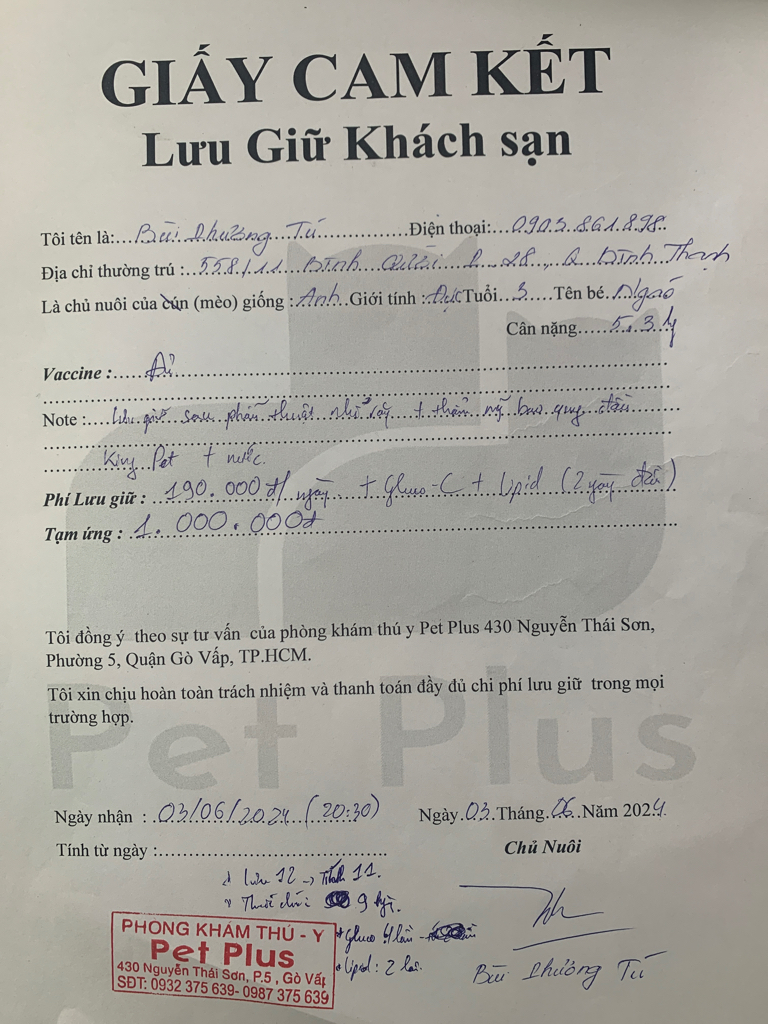 GIẤY CAM KẾT
Lưu Giữ Khách sạn
Tôi tên là:...Bùi Phương Tú..............Điện thoại:...0903.861.898..
Địa chỉ thường trú :..558/11 Bình Quới P 28, Q Bình Thạnh
Là chủ nuôi của cún (mèo) giống :Anh..Giới tính :Đực Tuổi...3....Tên bé.Ngáo
Cân nặng......5.3 kg
Vaccine :.....Đủ
Note :....Lưu giữ sau phẫu thuật + thẩm mỹ bao quy đầu
King Pet + nước.
Phí Lưu giữ : 190.000đ/ ngày + Gluco-C + Lipid (2 ngày đầu)
Tạm ứng : 1.000.000đ
Tôi đồng ý theo sự tư vấn của phòng khám thú y Pet Plus 430 Nguyễn Thái Sơn,
Phường 5, Quận Gò Vấp, TP.HCM.
Tôi xin chịu hoàn toàn trách nhiệm và thanh toán đầy đủ chi phí lưu giữ trong mọi
trường hợp.
Pet Plus
Ngày nhận : 03/06/2024 (20:30)
Ngày.03.Tháng.06.Năm 2024
Tính từ ngày :..........................................
Chủ Nuôi
Lưu 12 → Tính 11.
9
Gluco 4 lần
Lipid : 2 lần.
Bùi Phương Tú
PHÒNG KHÁM THÚ - Y
Pet Plus
430 Nguyễn Thái Sơn, P.5 , Gò Vấp
SĐT: 0932 375 639- 0987 375 639